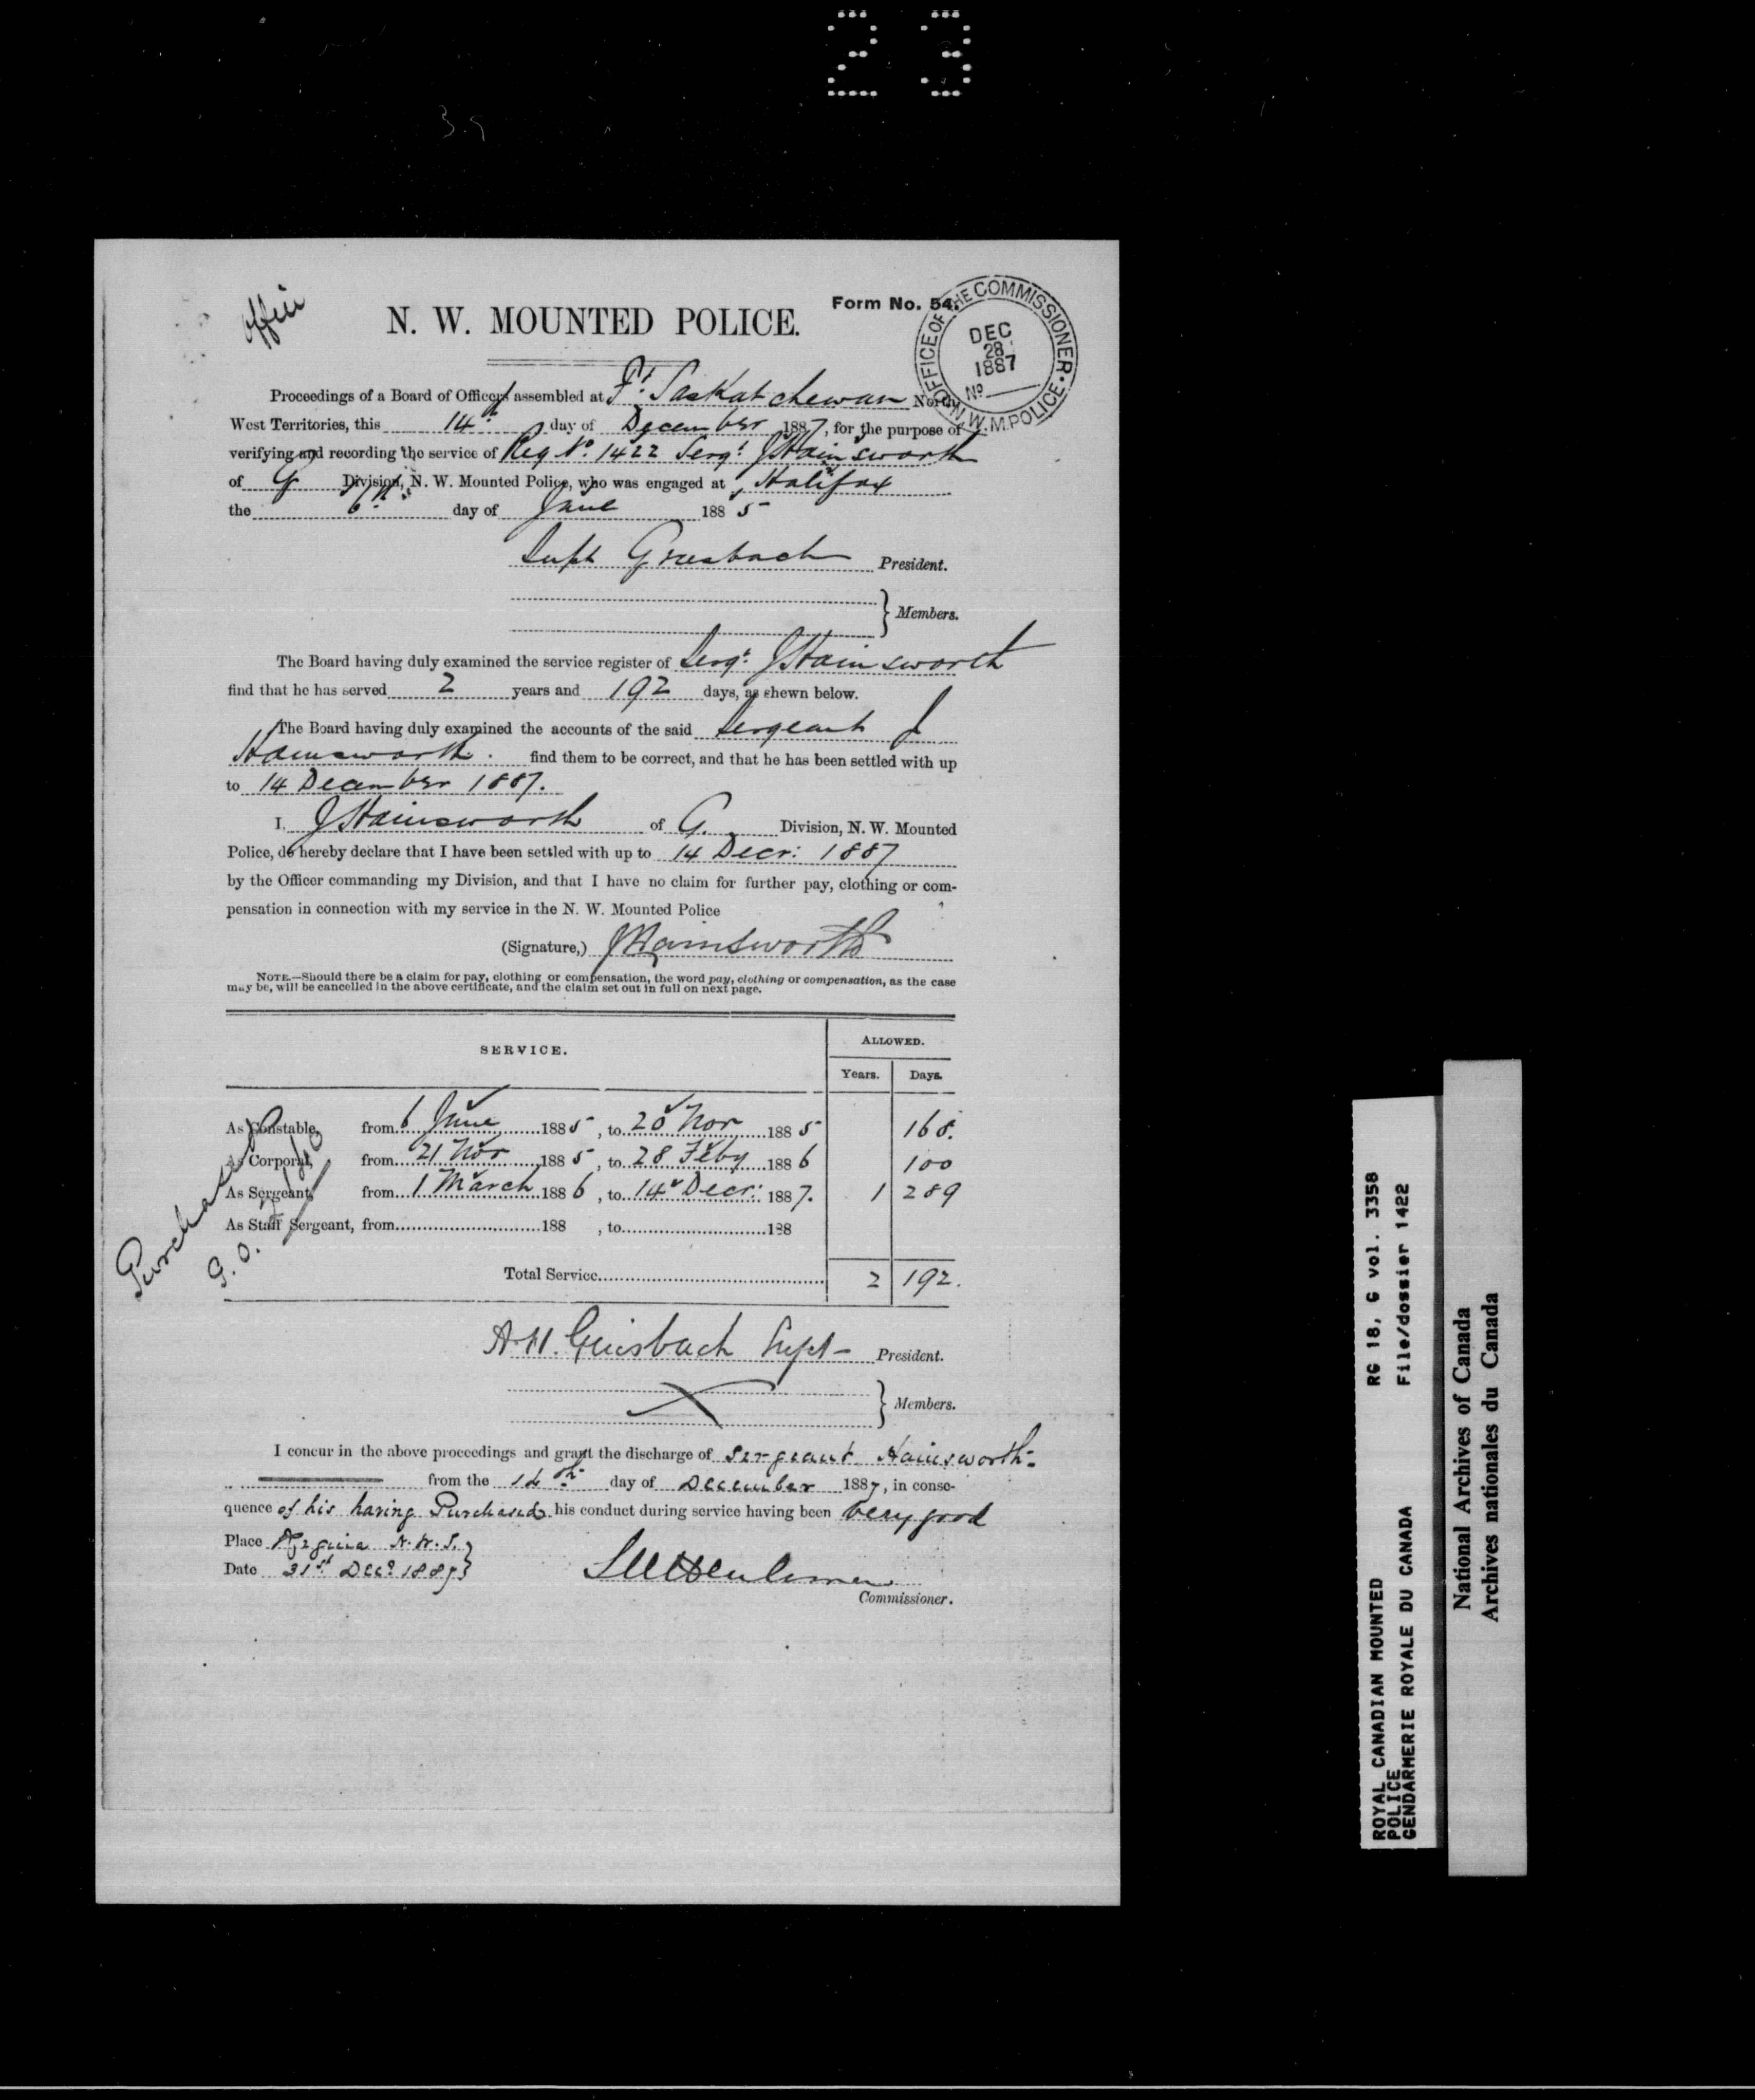 23
Office
Form No. 54.
N. W. MOUNTED POLICE.
OFFICE OF THE COMMISSIONER • N. W. M. POLICE •
DEC
28
1887
No
Proceedings of a Board of Officers assembled at Ft. Saskatchewan North
West Territories, this 14th day of December 1887, for the purpose of
verifying and recording the service of Reg No. 1422 Sergt. J Hainsworth
of G Division, N. W. Mounted Police, who was engaged at Halifax
the 6th day of June 1885
Supt Griesbach President.
Members.
The Board having duly examined the service register of Sergt. J Hainsworth
find that he has served 2 years and 192 days, as shewn below.
The Board having duly examined the accounts of the said Sergeant J
Hainsworth. find them to be correct, and that he has been settled with up
to 14 December 1887.
I, J Hainsworth of G. Division, N. W. Mounted
Police, do hereby declare that I have been settled with up to 14 Decr: 1887
by the Officer commanding my Division, and that I have no claim for further pay, clothing or com-
pensation in connection with my service in the N. W. Mounted Police
(Signature,) J Hainsworth
NOTE.—Should there be a claim for pay, clothing or compensation, the word pay, clothing or compensation, as the case
may be, will be cancelled in the above certificate, and the claim set out in full on next page.
SERVICE. ALLOWED.
Years. Days.
As Constable, from 6 June 1885, to 20 Nov 1885 168.
As Corporal, from 21 Nov 1885, to 28 Feby 1886 100
As Sergeant, from 1 March 1886, to 14 Decr: 1887. 1 289
As Staff Sergeant, from 188 , to 188
Purchased
G. O.
Total Service 2 192.
A. H. Griesbach Supt President.
Members.
I concur in the above proceedings and grant the discharge of Sergeant Hainsworth
from the 14th day of December 1887, in conse-
quence of his having Purchased his conduct during service having been very good
Place Regina N.W.T.
Date 31st Decr 1887
Commissioner.
RG 18, G vol. 3358
File/dossier 1422
ROYAL CANADIAN MOUNTED
POLICE
GENDARMERIE ROYALE DU CANADA
National Archives of Canada
Archives nationales du Canada